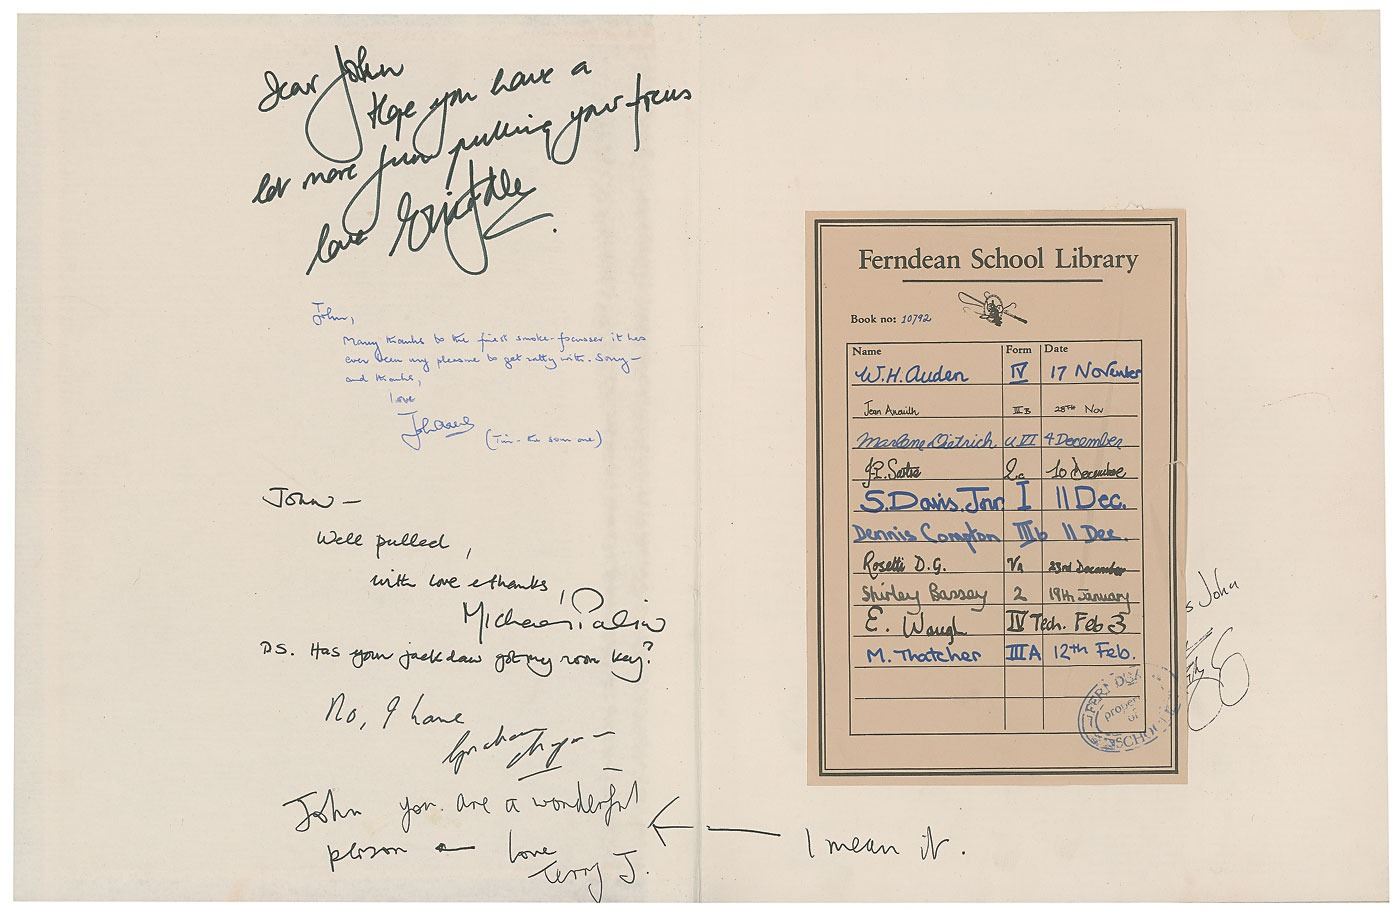 Dear John
Hope you have a
lot more fun pulling your focus
love Eric Idle
John,
Many thanks to the first smoke-focusser it has
ever been my pleasure to get ratty with. Sorry –
and thanks,
love
John Cleese
(I'm the one)
John –
Well pulled,
with love & thanks,
Michael Palin
P.S. Has your jackdaw got my room key?
No, I have
Graham Chapman
John you are a wonderful
person – love
Terry J.
I mean it.
Ferndean School Library
Book no: 10792
Name Form Date
W.H. Auden IV 17 November
Jean Anouilh III B 28TH Nov
Marlene Dietrich U VI 4 December
J.P. Sartre 2c 10 Decembre
S. Davis. Jnr. I 11 Dec.
Dennis Compton IIIb 11 Dec.
Rosetti D.G. Va 23rd December
Shirley Bassey 2 19th January
E. Waugh IV Tech. Feb 3
M. Thatcher IIIA 12th Feb.
s John